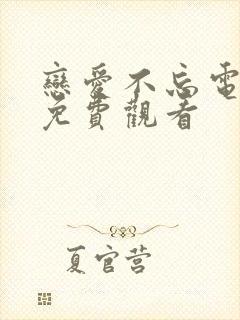 戀愛不忘電
免費觀看
夏官营